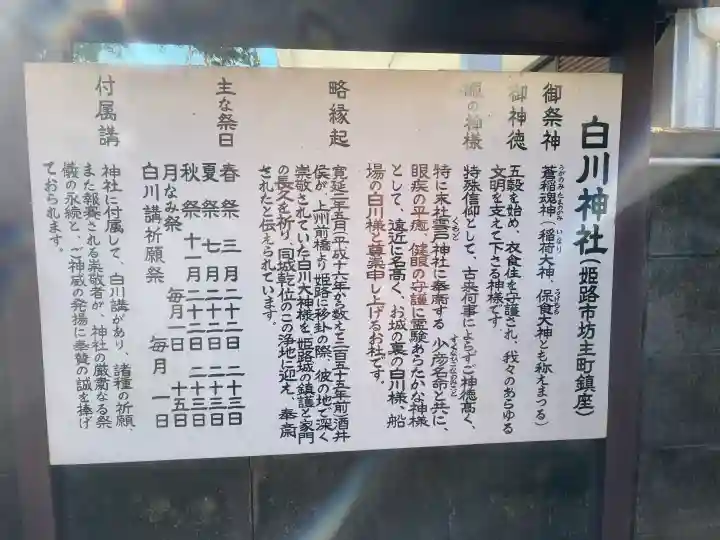 白川神社(姫路市坊主町鎮座)
御祭神
蒼稲魂神(稲荷大神、保食大神とも称えまつる)
うがのみたまのかみ いなり うけもち
御神徳
五穀を始め、衣食住を守護され、我々のあらゆる
文明を支えて下さる神様です。
の神様
特殊信仰として、古来何事によらずご神徳高く、
特に末社雲戸神社に奉斎する少彦名命と共に、
くもど すくなひこなのみこと
眼疾の平癒、健眼の守護に霊験あらたかな神様
として、遠近に名高く、お城の裏の白川様、船
場の白川様と尊崇申し上げるお社です。
略縁起
寛延二年五月(平成十六年から数えて二百五十五年前)酒井
侯が、上州前橋より姫路に移封の際、彼の地で深く
崇敬されていた白川大神様を、姫路城の鎮護と家門
の長久を祈り、同城乾位のこの浄地に迎え、奉斎
されたと伝えられています。
主な祭日
春祭 三月二十二日 二十三日
夏祭 七月二十二日 二十三日
秋祭 十一月二十二日 二十三日
月なみ祭 毎月一日 十五日
白川講祈願祭 毎月一日
付属講
神社に付属して、白川講があり、諸種の祈願、
また報賽される崇敬者が、神社の厳粛なる祭
儀の永続と、ご神威の発揚に奉賛の誠を捧げ
ておられます。